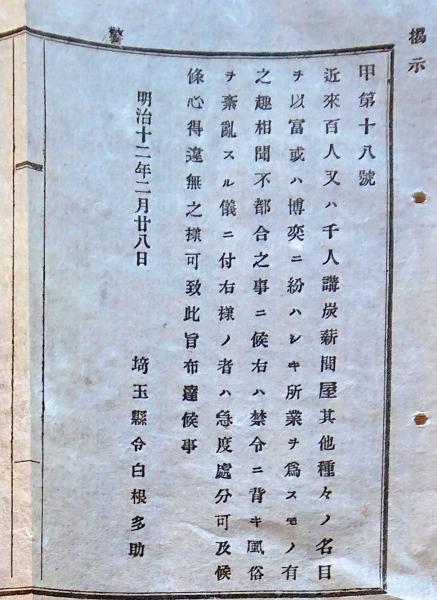 揭示
甲第十八號
近來百人又ハ千人講炭薪問屋其他種々ノ名目
ヲ以富或ハ博奕ニ紛ハシキ所業ヲ爲スモノ有
之趣相聞不都合之事ニ候右ハ禁令ニ背キ風俗
ヲ紊亂スル儀ニ付右樣ノ者ハ急度處分可及候
條心得違無之樣可致此旨布達候事
明治十二年二月廿八日
埼玉縣令白根多助
警